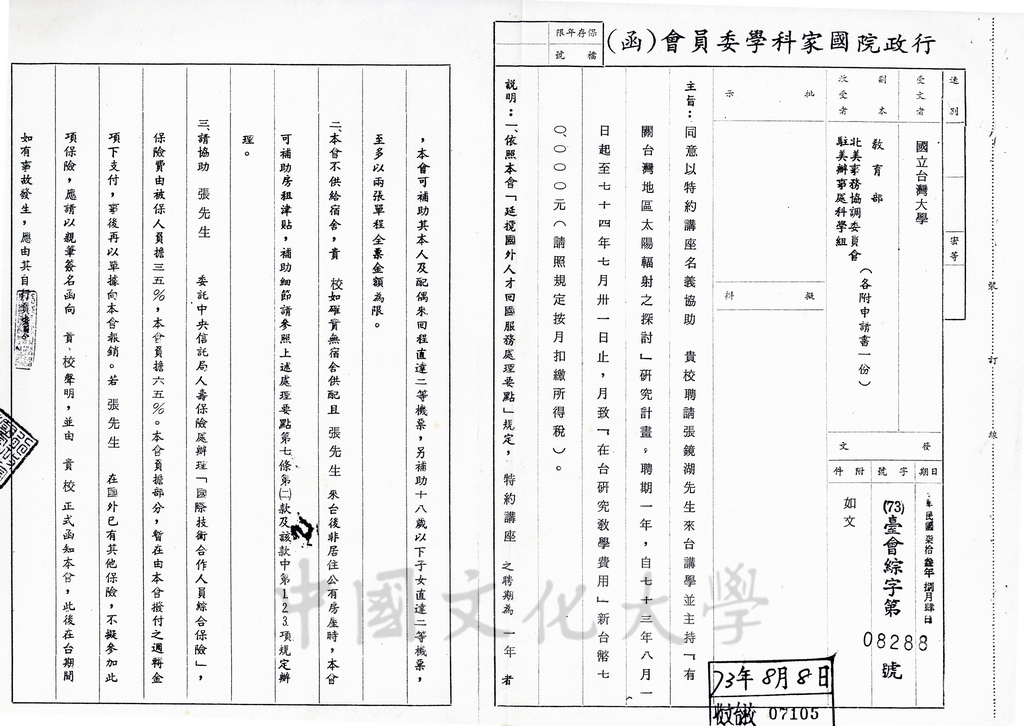 行政院國家科學委員會(函)
保存年限
檔號
速別
密等
受文者
國立台灣大學
副本收受者
教育部
北美事務協調委員會
駐美辦事處科學組
(各附申請書一份)
發文
日期
字號
附件
中華民國柒拾叁年捌月肆日
(73)臺會綜字第08288號
如文
批示
擬辦
主旨:同意以特約講座名義協助 貴校聘請張鏡湖先生來台講學並主持「有
關台灣地區太陽輻射之探討」研究計畫。聘期一年,自七十三年八月一
日起至七十四年七月卅一日止,月致「在台研究教學費用」新台幣七
○、○○○元(請照規定按月扣繳所得稅)。
說明:一、依照本會「延攬國外人才回國服務處理要點」規定,特約講座之聘期為一年者
,本會可補助其本人及配偶來回程直達二等機票,另補助十八歲以下子女直達二等機票,
至多以兩張單程全票金額為限。
二、本會不供給宿舍,貴 校如確實無宿舍供配且 張先生 來台後非居住公有房座時,本會
可補助房租津貼,補助細節請參照上述處理要點第七條第㈡款及該款中第1.2.3.項規定辦
理。
三、請協助 張先生 委託中央信託局人壽保險處辦理「國際技術合作人員綜合保險」,
保險費由被保人員擔三五%,本會負擔六五%。本會負擔部分,暫在由本會撥付之週轉金
項下支付,事後再以單據向本會報銷。若 張先生 在國外已有其他保險,不擬參加此
項保險,應請以親筆簽名函向 貴 校聲明,並由 貴 校正式函知本會,此後在台期間
如有事故發生,應由其自行負責
73年8月8日
07105
裝訂線
中國文化大學